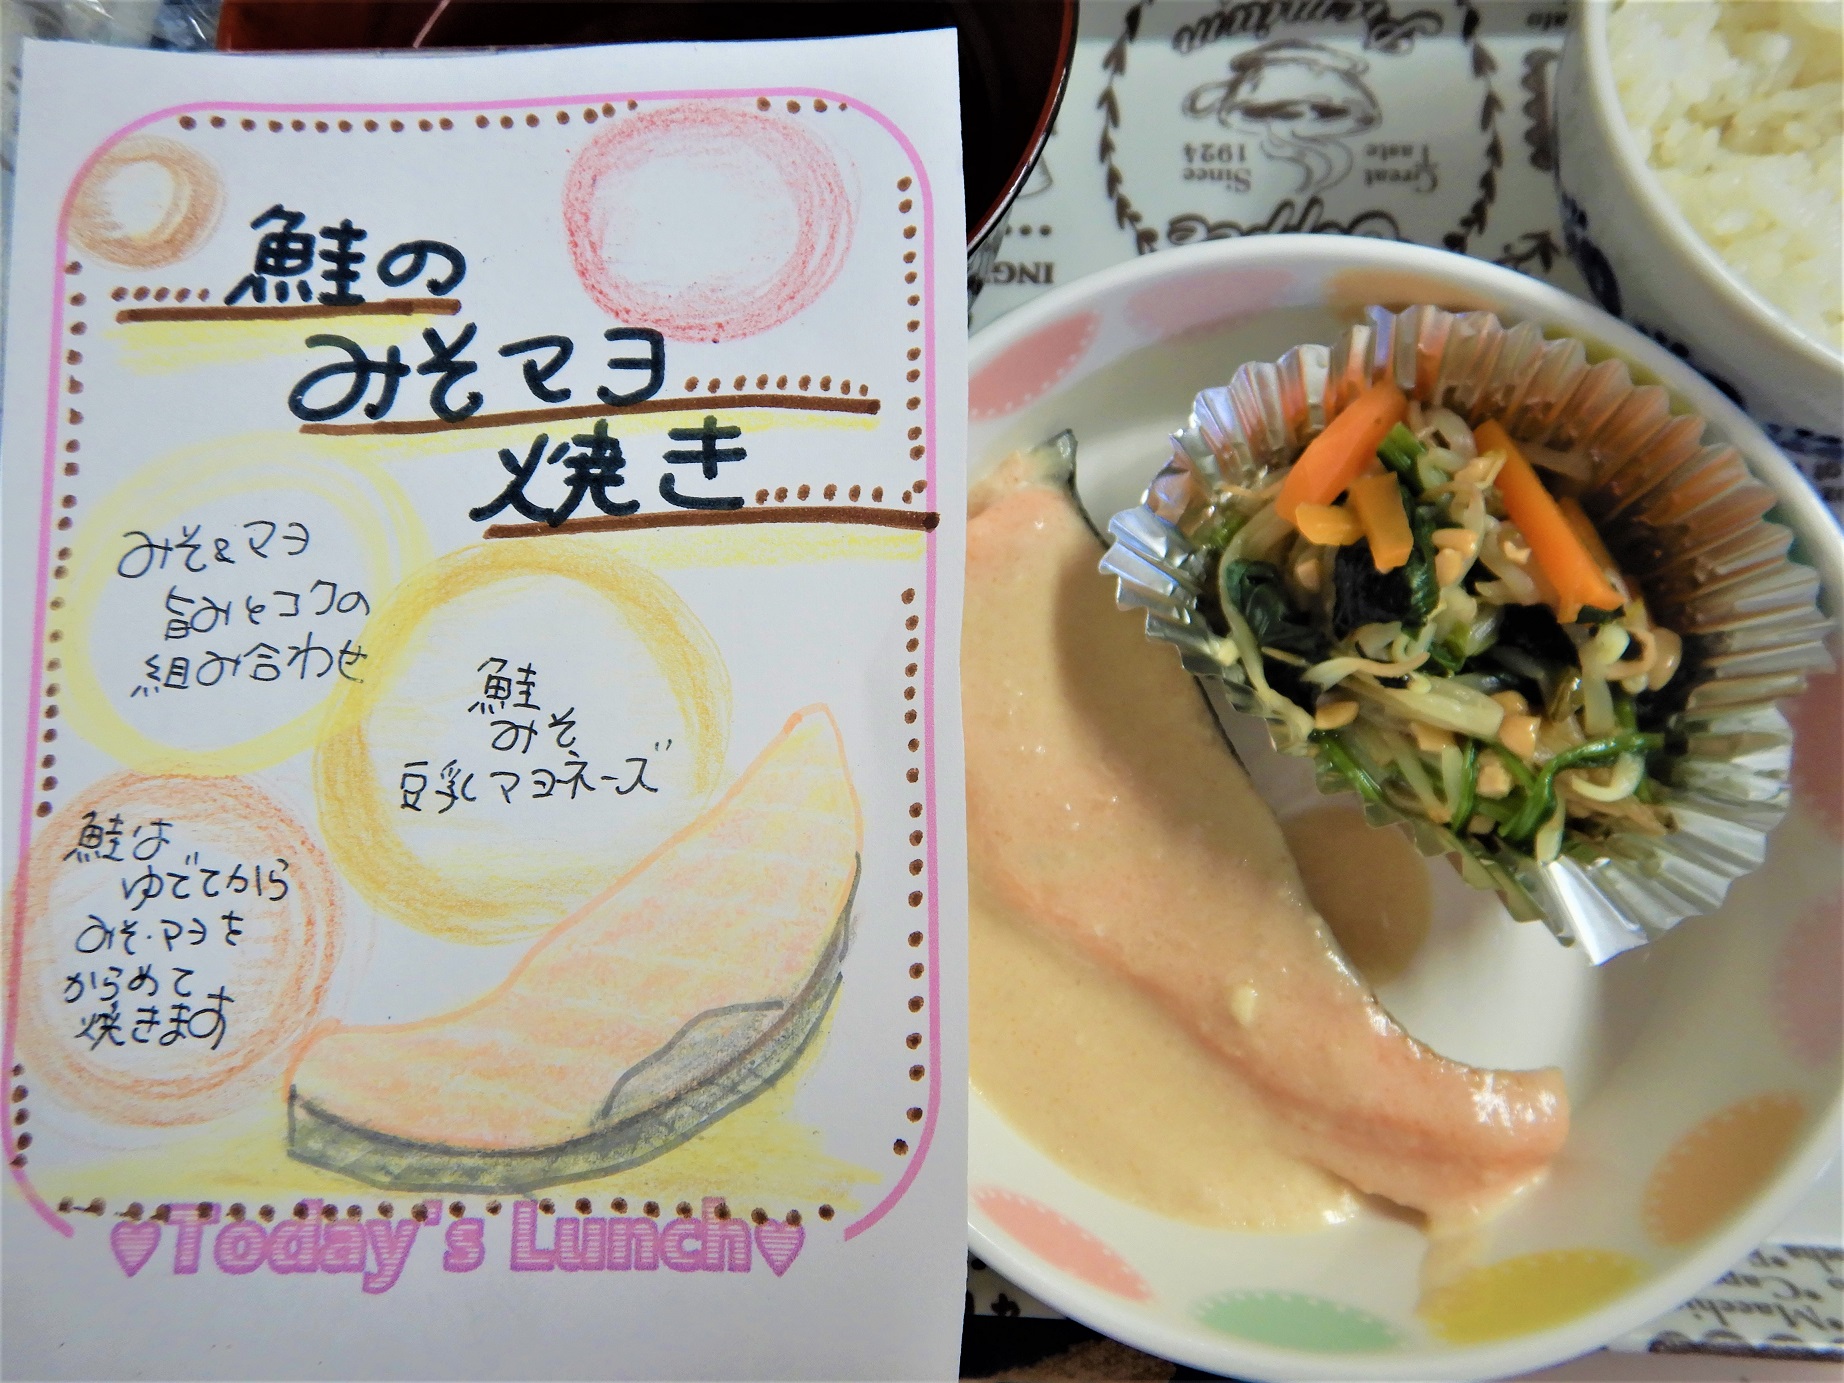 鮭の
みそマヨ
焼き
みそ&マヨ
旨みとコクの
組み合わせ
鮭
みそ
豆乳マヨネーズ
鮭は
ゆでてから
みそ・マヨを
からめて
焼きます
♥Today's Lunch♥
Since
1924
Great
Taste
Coffee
ING
Macchi